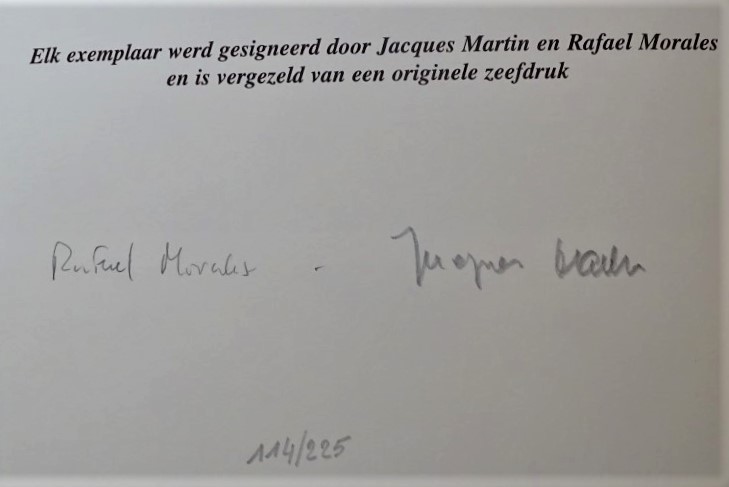 Elk exemplaar werd gesigneerd door Jacques Martin en Rafael Morales
en is vergezeld van een originele zeefdruk
Rafael Morales - Jacques Martin
114/225